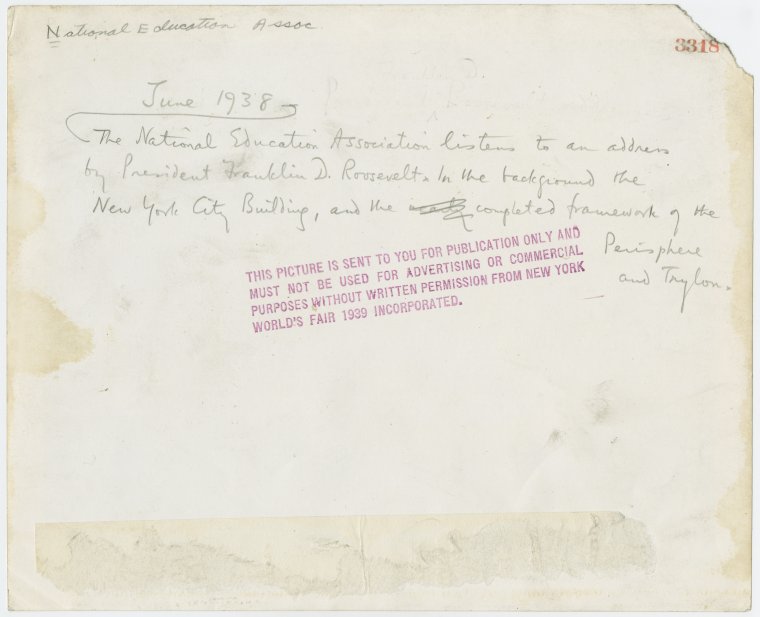 National Education Assoc.
3318
June 1938
The National Education Association listens to an address
by President Franklin D. Roosevelt. In the background the
New York City Building, and the completed framework of the
Perisphere
and Trylon.
THIS PICTURE IS SENT TO YOU FOR PUBLICATION ONLY AND
MUST NOT BE USED FOR ADVERTISING OR COMMERCIAL
PURPOSES WITHOUT WRITTEN PERMISSION FROM NEW YORK
WORLD'S FAIR 1939 INCORPORATED.